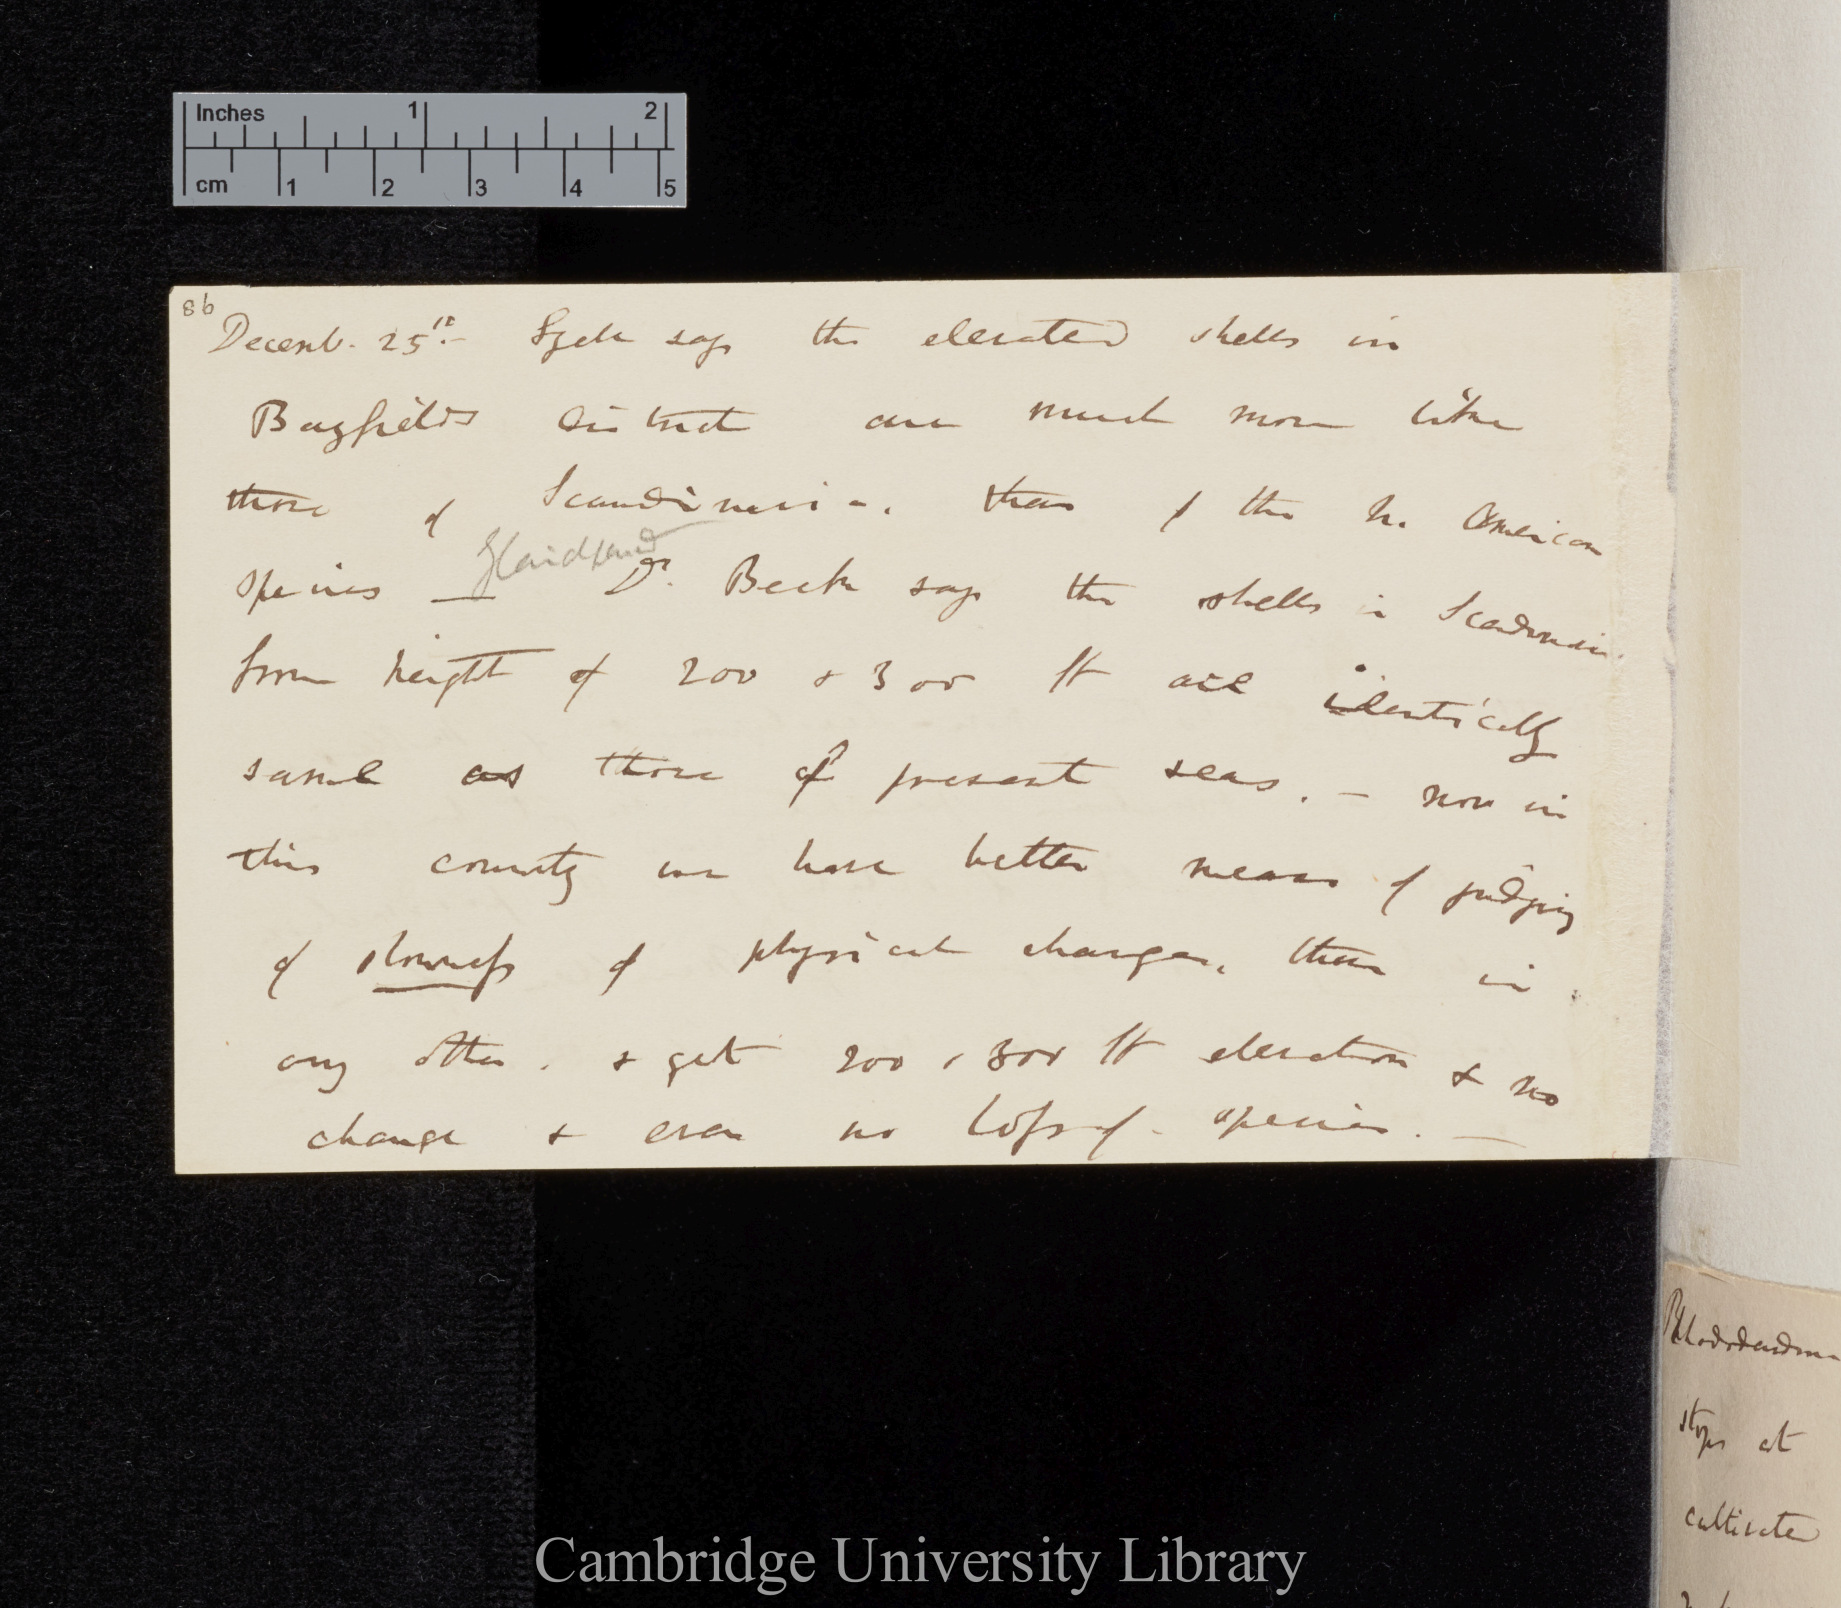 Inches 1 2
cm 1 2 3 4 5
8b
Decemb. 25th.— Lyell says the elevated shells in
Bayfields district are much more like
those of Scandinavia, than of the N. American
species — Dr. Beck says the shells in Scandinavia
from height of 200 & 300 ft are identically
same as those of present seas. — now in
this country we have better means of judging
of slowness of physical changes, than in
any other. & yet 200 & 300 ft elevation & no
change & even no loss of species. —
Rhododendron
stops at
cultivate
Cambridge University Library